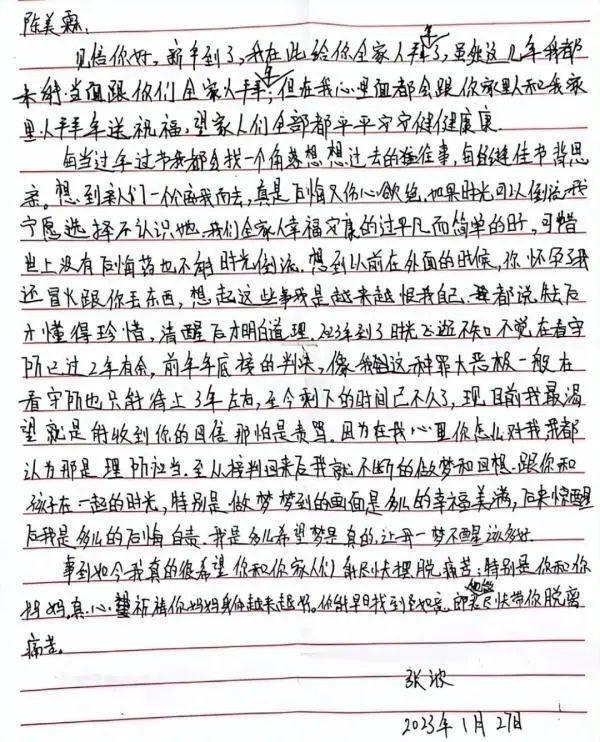 陈美霖:
见信你好,新年到了,我在此给你全家人拜年了,虽然这几年我都
未能当面跟你们全家人拜年,但在我心里面都会跟你家里人和我家
里人拜年送祝福,望家人们全部都平平安安健健康康
每当过年过节我都会找一个角落想想过去的种往事,每逢佳节倍思
亲。想到亲人们一个个离我而去,真是后悔又伤心欲绝,如果时光可以倒流我
宁愿选择不认识她。我们全家人幸福安康的过平凡而简单的日子,可惜
世上没有后悔药也不能时光倒流。想到以前在外面的时候,你怀孕了我
还冒火跟你丢东西,想起这些事我是越来越恨我自己,我都说失去后
才懂得珍惜,清醒后才明白道理。2023年到了时光飞逝不知不觉在看守
所已过2年有余,前年年底接的判决,像我们这种罪大恶极一般在
看守所也只能待上3年左右,至今剩下的时间已不久了,现目前我最渴
望就是能收到你的回信那怕是责骂。因为在我心里你怎么对我我都
认为那是理所应当。至从接判回来后我就不断的做梦和回想跟你和
孩子在一起的时光,特别是做梦梦到的画面是多么的幸福美满,后来惊醒
后我是多么的后悔自责。我是多么希望梦是真的,让我一梦不醒该多好。
事到如今我真的很希望你和你家人们能尽快摆脱痛苦,特别是你和你
妈妈。真心希望祈祷你妈妈身体越来越好。你能早日找到如意 尽快带你脱离
痛苦。
张波
2023年1月27日